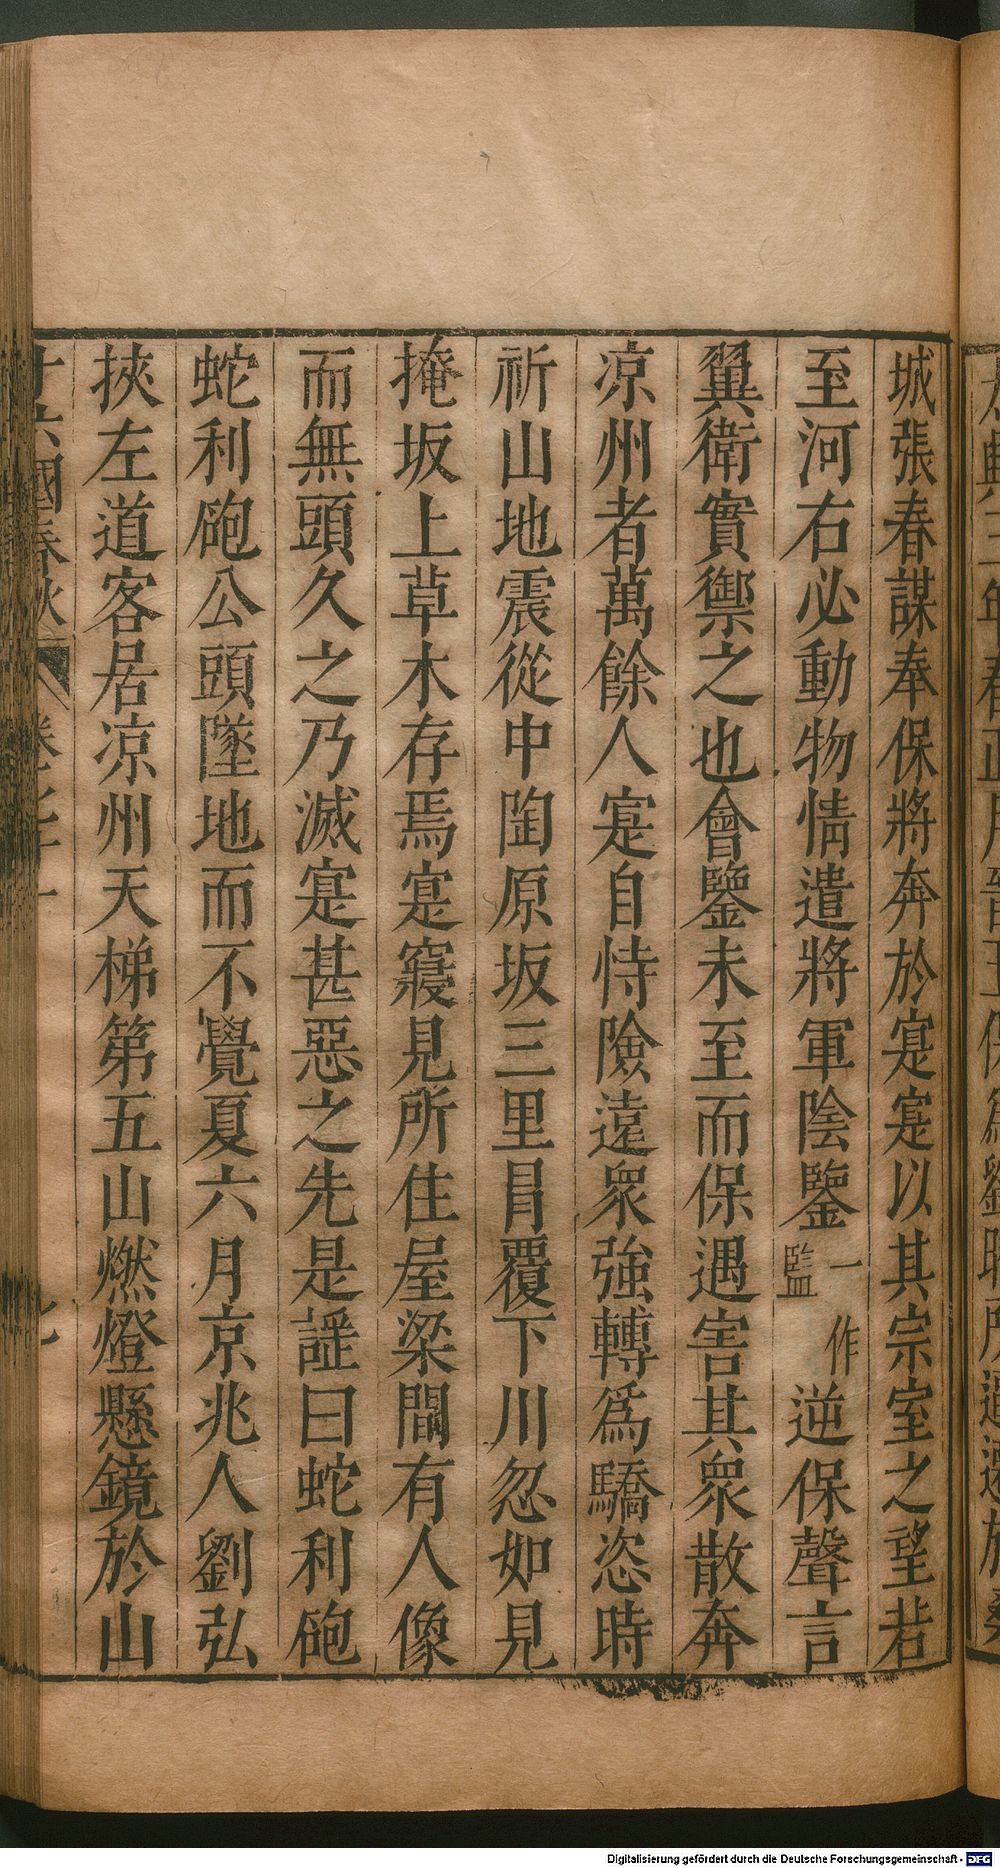 城張春謀奉保將奔於寔寔以其宗室之望若
至河右必動物情遣將軍陰鑒一作監逆保聲言
翼衛實禦之也會鑒未至而保遇害其衆散奔
凉州者萬餘人寔自恃險遠衆強轉爲驕恣時
祈山地震從中陶原坂三里冒覆下川忽如見
掩坂上草木存焉寔寢見所住屋梁間有人像
而無頭久之乃滅寔甚惡之先是謡曰蛇利砲
蛇利砲公頭墜地而不覺夏六月京兆人劉弘
挾左道客居凉州天梯第五山燃燈懸鏡於山
國春秋
Digitalisierung gefördert durch die Deutsche Forschungsgemeinschaft - DFG